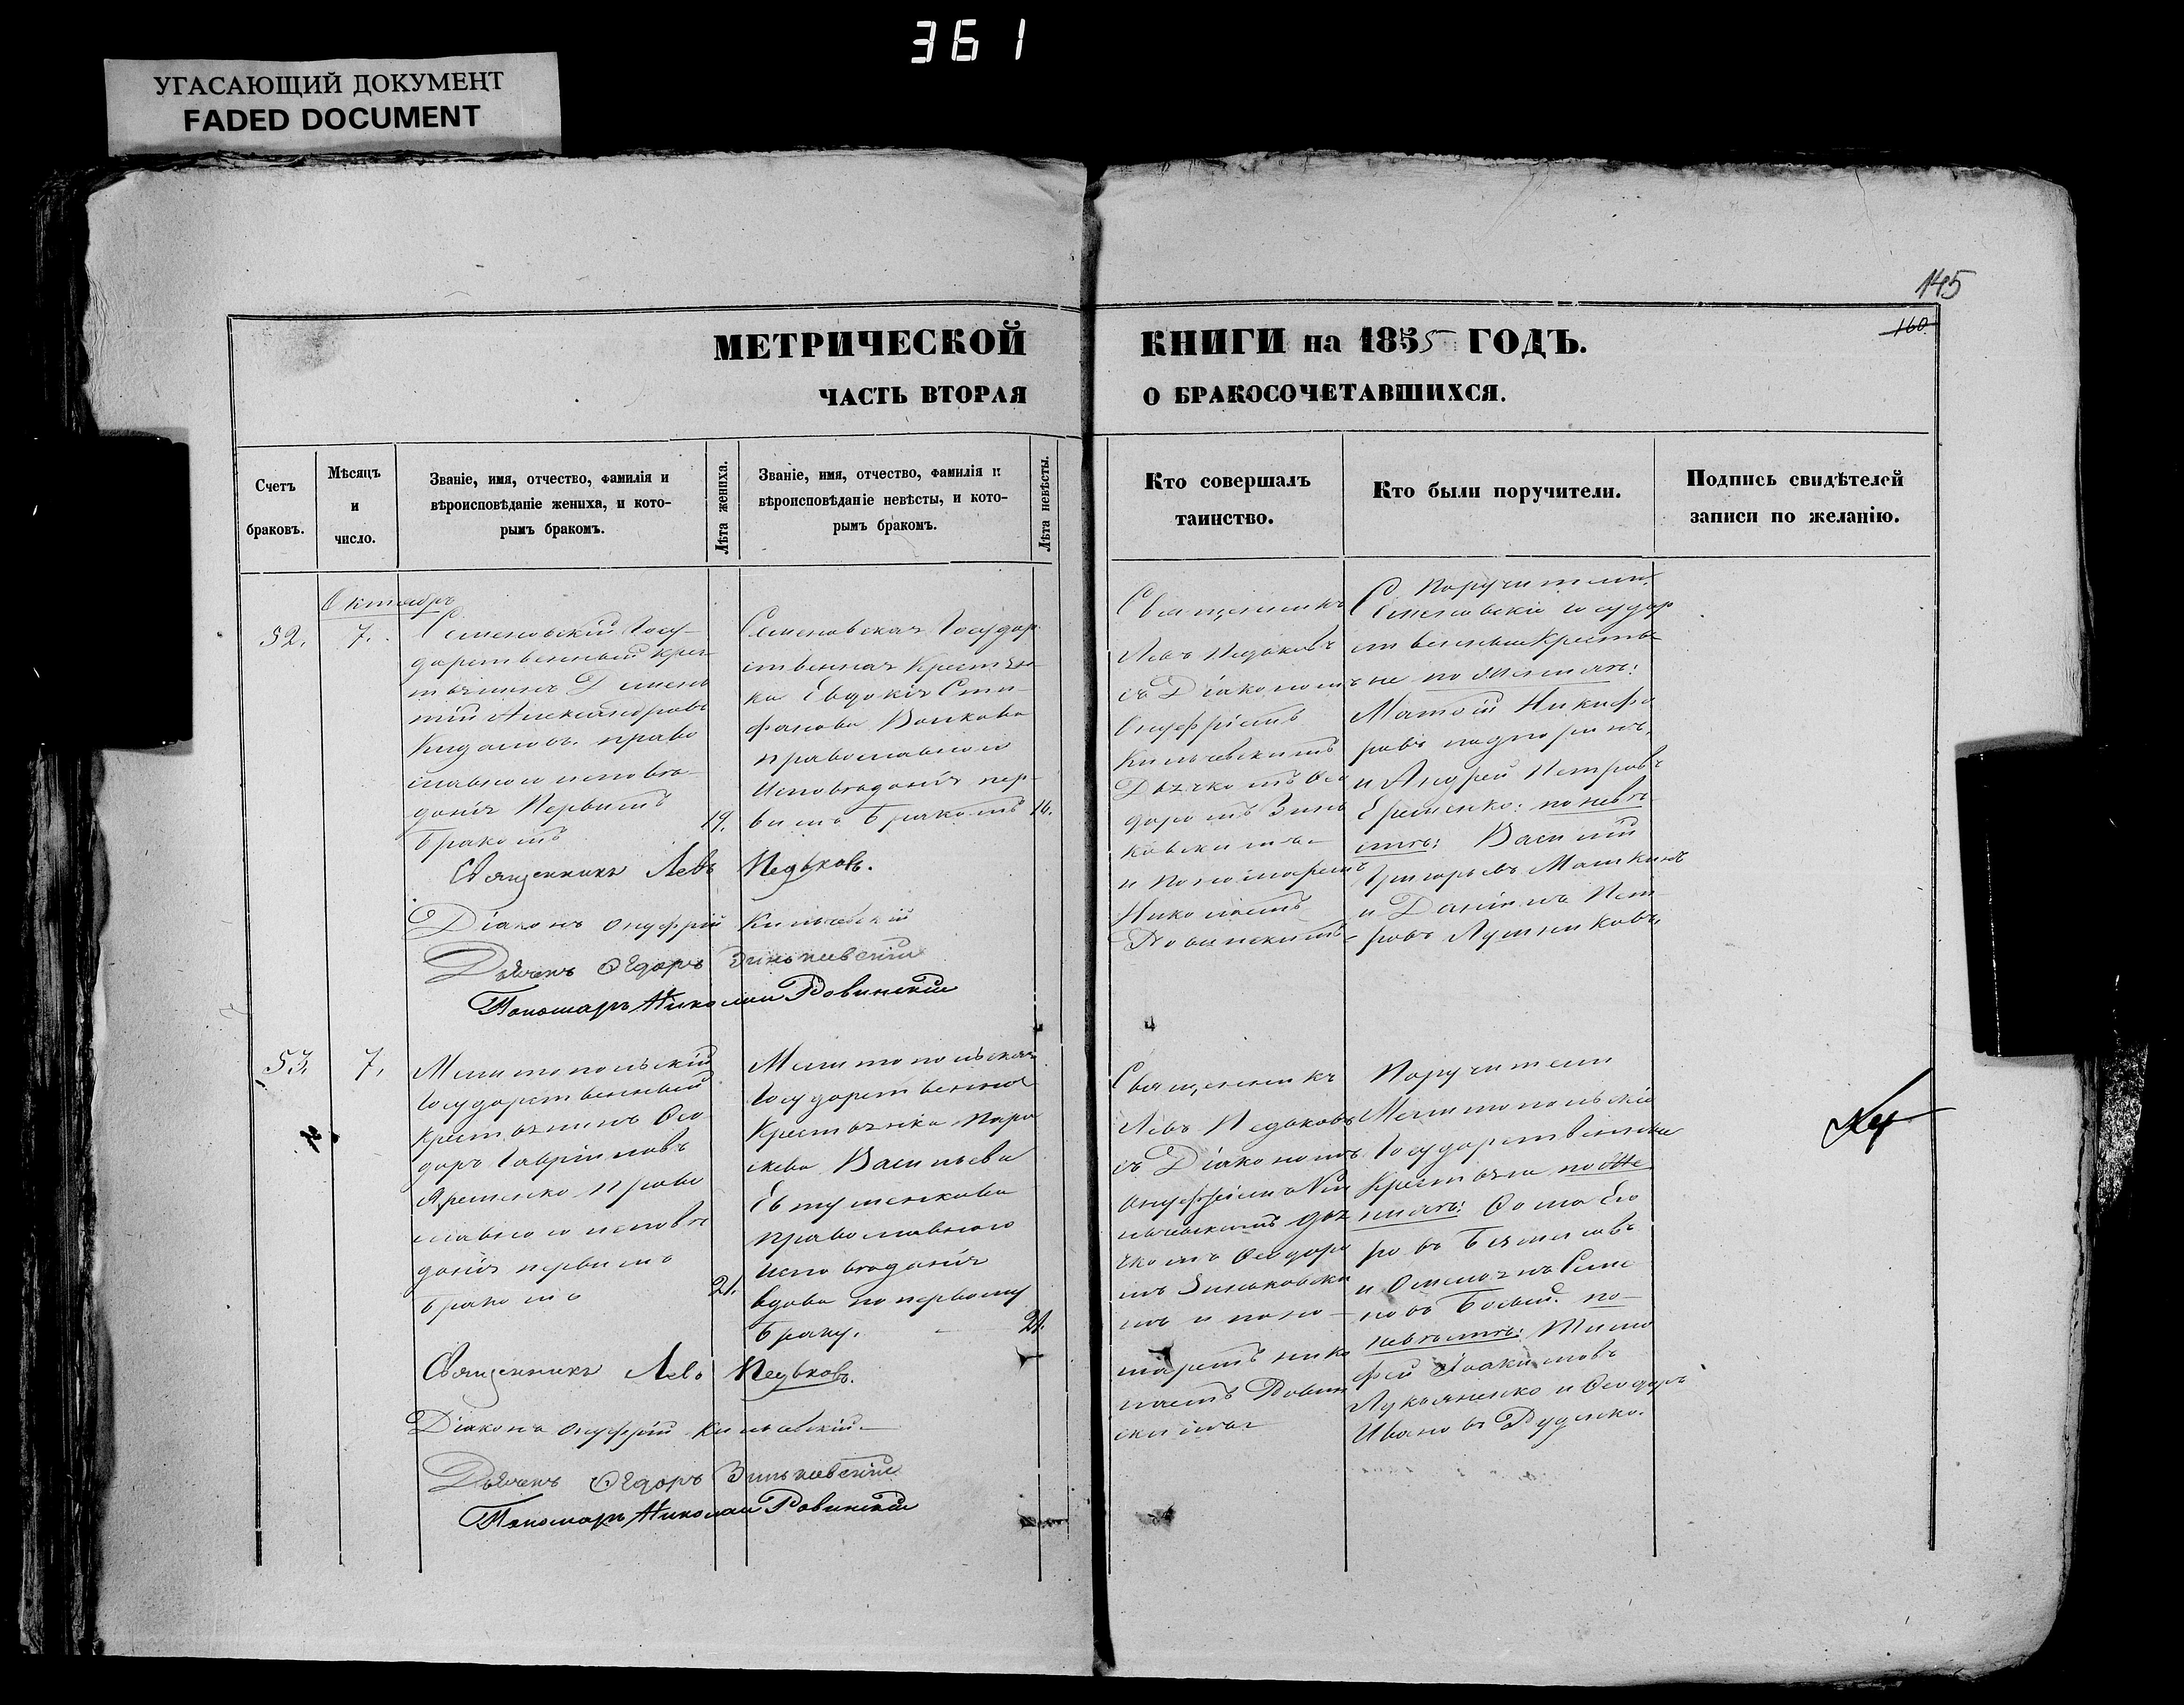 361
УГАСАЮЩИЙ ДОКУМЕНТ
FADED DOCUMENT
145
160.
МЕТРИЧЕСКОЙ КНИГИ на 1855 ГОДЪ.
ЧАСТЬ ВТОРАЯ О БРАКОСОЧЕТАВШИХСЯ.
Счетъ
браковъ.
Мѣсяцъ
и
число.
Званіе, имя, отчество, фамилія и
вѣроисповѣданіе жениха, и кото-
рымъ бракомъ.
Лѣта жениха.
Званіе, имя, отчество, фамилія и
вѣроисповѣданіе невѣсты, и кото-
рымъ бракомъ.
Лѣта невѣсты.
Кто совершалъ
таинство.
Кто были поручители.
Подпись свидѣтелей
записи по желанію.
Октябрь
52.
7.
Семеновскій Госу-
дарственный крес
тьянинъ Демень
тій Александровъ
право
славного исповѣ-
данія Первымъ
бракомъ
19.
Семеновская Государ
ственная Крестьян
ка Евдокія Сте-
фанова Волкова
православного
Исповѣданія пер-
вымъ бракомъ
Священникъ
Левъ Педьковъ
съ Діакономъ
Онуфріемъ
Кильчевскимъ
Дьячкомъ Ѳео
доромъ Зинь
ковскимъ
и Пономаремъ
Николаемъ
Ровинскимъ
Поручители
Семеновскіе государ
ственные Крестья
не по женихѣ:
Матѳій Никифо
ровъ
и Андрей Петровъ
Еременко: по невѣ
стѣ: Василій
Григорьевъ Машкинъ
и Даніилъ Пет
ровъ Лушниковъ
Священникъ Левъ Педьковъ.
Діаконъ Онуфрій Кильчевскій
Дьячекъ Ѳедоръ Зиньковскій
Пономарь Николай Ровинскій
53.
7.
Мелитопольскій
Государственный
Крестьянинъ Ѳео
доръ Гавріиловъ
Яременко Право
славного исповѣ
данія первымъ
бракомъ
21.
Мелитопольская
Государственная
Крестьянка Пара
скева Васильева
Евтушенкова
православного
Исповѣданія
вдова по первому
браку.
21.
Священникъ
Левъ Педьковъ
съ Діакономъ
Онуфріемъ Ки
льчевскимъ Дья
чкомъ Ѳеодоро
мъ Зиньковски
мъ и поно-
маремъ Нико
лаемъ Ровин
скимъ
Поручители
Мелитопольскіе
Государственные
Крестьяне по Же
нихѣ: Ѳома Его
ровъ
и Семе
новъ по
невѣстѣ: Тимо
фей Іоакимовъ
Лукьяненко и Ѳеодоръ
Ивановъ Руденко.
Священникъ Левъ Педьковъ.
Діаконъ Онуфрій Кильчевскій
Дьячекъ Ѳедоръ Зиньковскій
Пономарь Николай Ровинскій